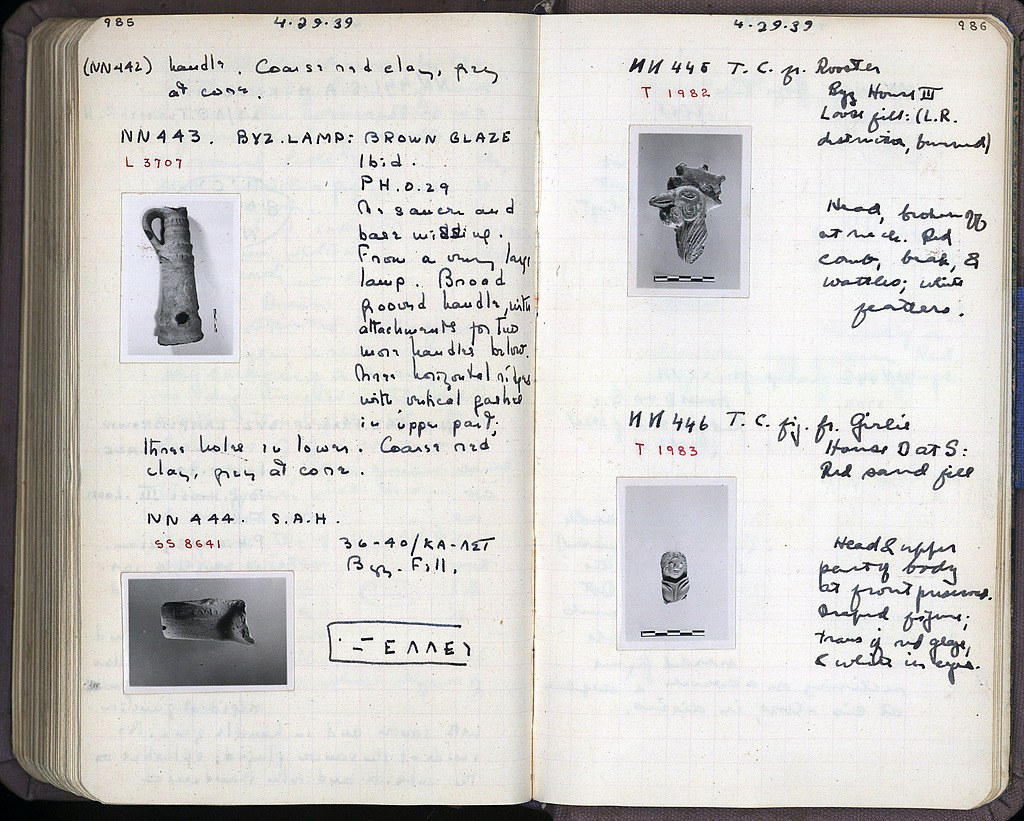 985
4-29-39
(NN442) handle. Coarse red clay, grey
at core.
NN443. BYZ. LAMP: BROWN GLAZE
L 3707
Ibid.
P.H. 0.29
The saucer and
base missing.
From a very large
lamp. Broad
grooved handle, with
attachments for two
more handles below.
Three horizontal ridges
with vertical gashes
in upper part;
three holes in lower. Coarse red
clay, grey at core.
NN 444. S.A.H.
SS 8641
36-40/ΚΑ-ΛΣΤ
Byz. Fill.
ΕΛΛΕΥ
4-29-39
986
NN 445 T.C. fr. Rooster
T 1982
Byz House III
Loose fill: (L.R.
destruction, burned)
Head, broken off
at neck. Red
comb, beak, &
wattles; white
feathers.
NN 446 T.C. fig. fr. Girlie
T 1983
House D at S:
Red sand fill
Head & upper
part of body
at front preserved.
Draped figure;
traces of red glaze,
& white in eyes.